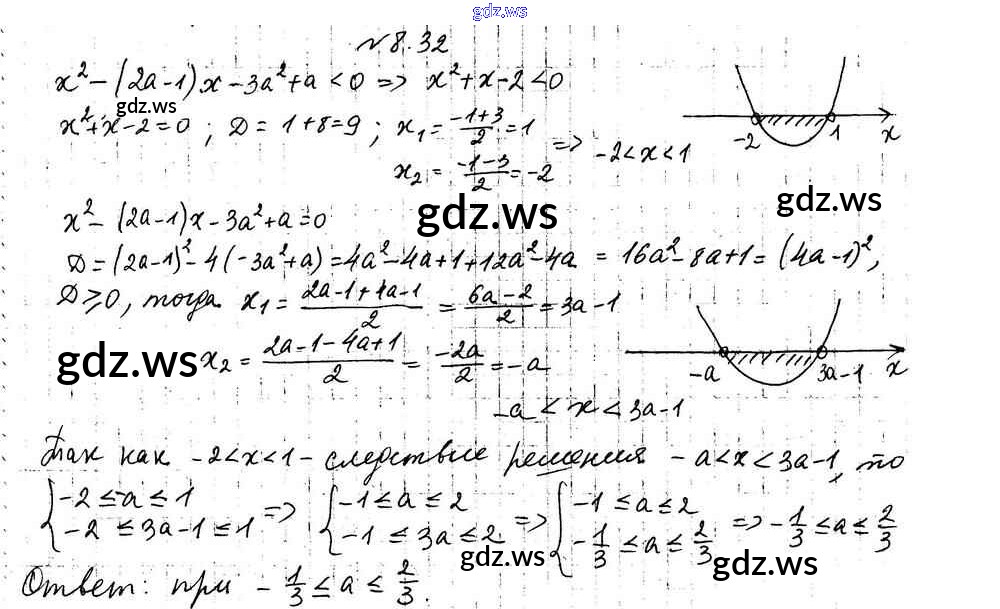 gdz.ws
№8.32
x² − (2a−1)x − 3a² + a < 0 => x² + x − 2 < 0
gdz.ws
x² + x − 2 = 0 ; D = 1 + 8 = 9 ; x₁ = (−1+3)/2 = 1
x₂ = (−1−3)/2 = −2 => −2 < x < 1
−2 1 x
gdz.ws
gdz.ws
x² − (2a−1)x − 3a² + a = 0
D = (2a−1)² − 4(−3a² + a) = 4a² − 4a + 1 + 12a² − 4a = 16a² − 8a + 1 = (4a−1)²,
D ≥ 0, тогда x₁ = (2a−1+4a−1)/2 = (6a−2)/2 = 3a−1
gdz.ws
x₂ = (2a−1−4a+1)/2 = −2a/2 = −a
−a 3a−1 x
−a < x < 3a−1
Так как −2 < x < 1 − следствие решения −a < x < 3a−1, то
{ −2 ≤ −a ≤ 1 => { −1 ≤ a ≤ 2 => { −1 ≤ a ≤ 2
−2 ≤ 3a−1 ≤ 1 −1 ≤ 3a ≤ 2 −1/3 ≤ a ≤ 2/3 => −1/3 ≤ a ≤ 2/3
gdz.ws
gdz.ws
Ответ: при −1/3 ≤ a ≤ 2/3.